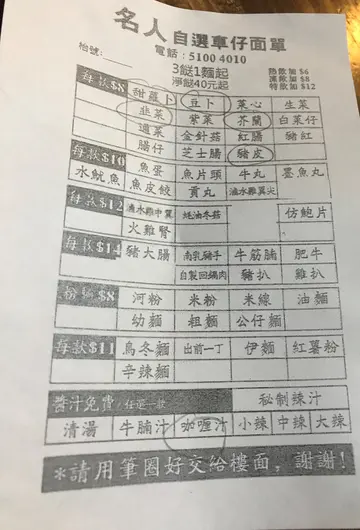 名人自選車仔面單
電話：5100 4010
枱號：
3餸1麵起
淨餸40元起
熱飲加 $6
凍飲加 $8
特飲加 $12
每款$8 甜蘿卜 豆卜 菜心 生菜
韭菜 紫菜 芥蘭 白菜仔
通菜 金針菇 紅腸 豬紅
腸仔 芝士腸 豬皮
每款$10 魚蛋 魚片頭 牛丸 墨魚丸
水魷魚 魚皮餃 貢丸 滷水雞翼尖
每款$12 滷水雞中翼 蚝油冬菇 仿鮑片
火雞腎
每款$14 豬大腸 南乳豬手 牛筋腩 肥牛
自製回鍋肉 豬扒 雞扒
粉麵$8 河粉 米粉 米線 油麵
幼麵 粗麵 公仔麵
每款$11 烏冬麵 出前一丁 伊麵 紅薯粉
辛辣麵
醬汁免費/任選一款 秘制辣汁
清湯 牛腩汁 咖喱汁 小辣 中辣 大辣
*請用筆圈好交給樓面，謝謝!